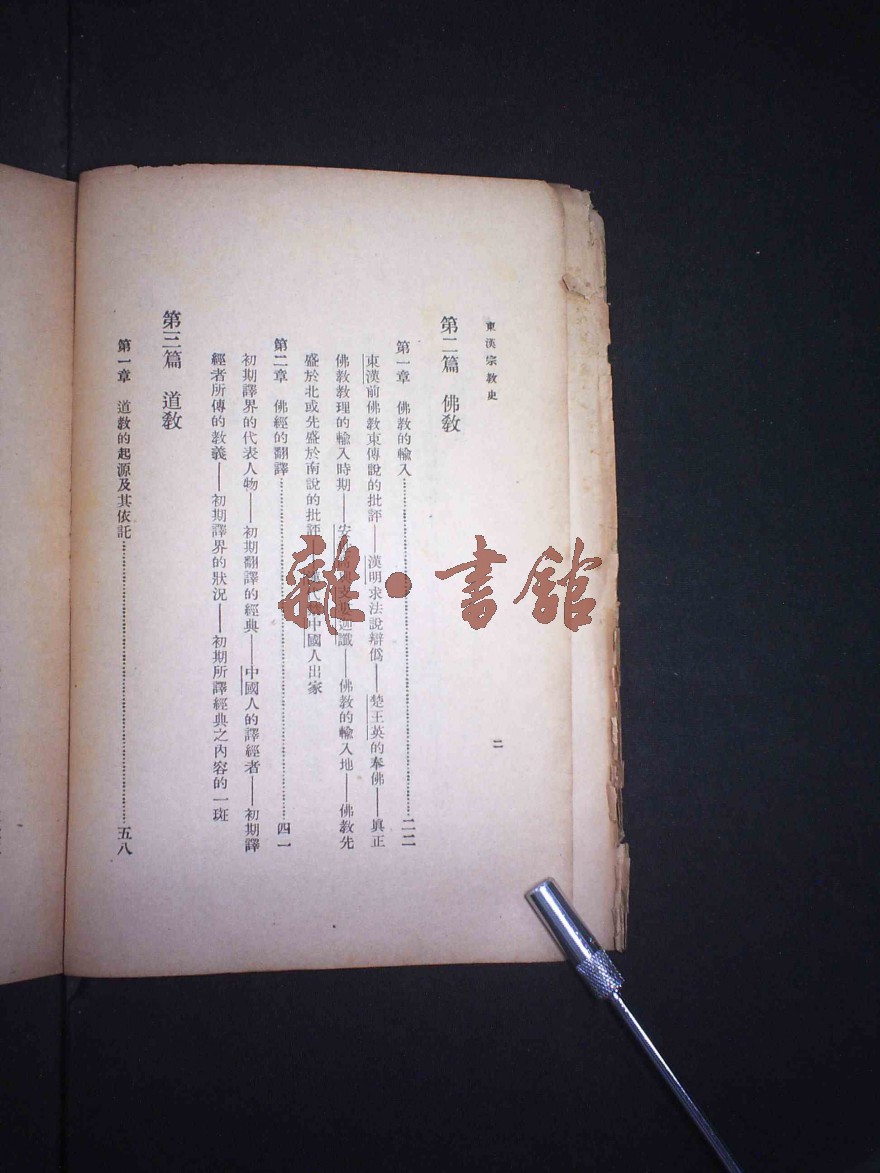 東漢宗教史
二
第二篇　佛教
第一章　佛教的輸入……………………二二
東漢前佛教東傳說的批評——漢明求法說辯僞——楚王英的奉佛——眞正
佛教教理的輸入時期——安支迦讖——佛教的輸入地——佛教先
盛於北或先盛於南說的批評——中國人出家
第二章　佛經的翻譯……………………四一
初期譯界的代表人物——初期翻譯的經典——中國人的譯經者——初期譯
經者所傳的教義——初期譯界的狀況——初期所譯經典之內容的一斑
第三篇　道教
第一章　道教的起源及其依託……………………五八
雜·書館